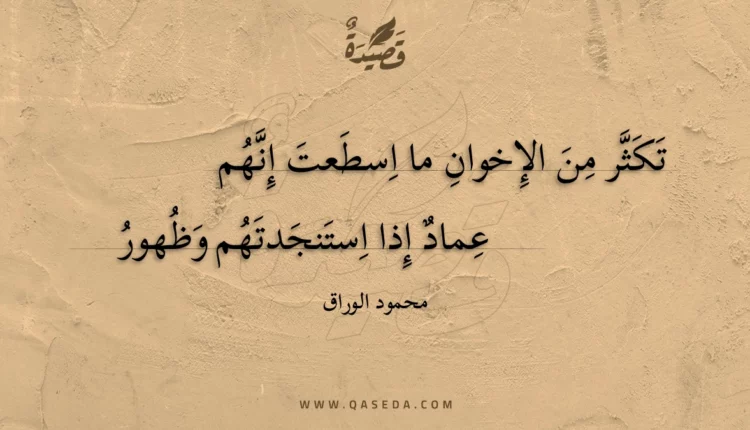 قَصِيدَةٌ
تَكَثَّر مِنَ الإِخوانِ ما اِسطَعتَ إِنَّهُم
عِمادٌ إِذا اِستَنجَدتَهُم وَظُهورُ
محمود الوراق
WWW.QASEDA.COM